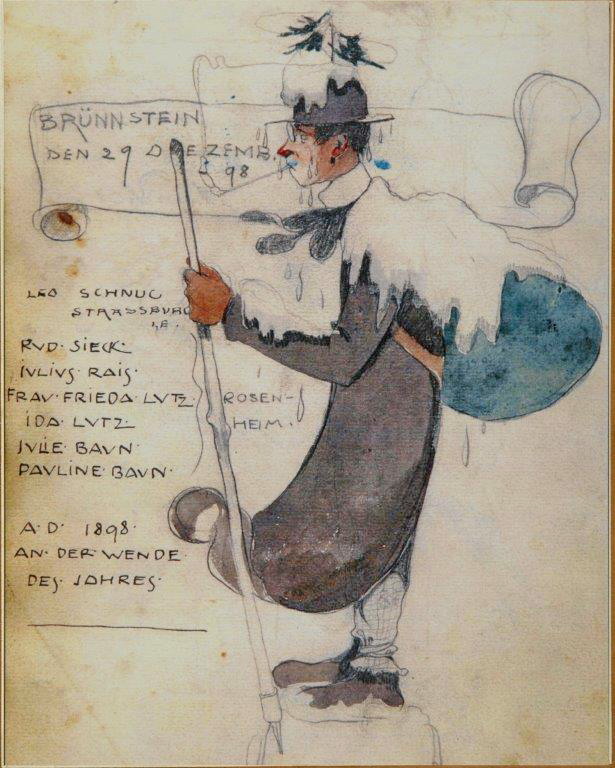 BRÜNNSTEIN
DEN 29 DEZEMB.
98
LEO SCHNUG
STRASSBURG
I.E.
RVD· SIECK·
IVLIVS· RAIS·
FRAV· FRIEDA· LVTZ· ROSEN-
IDA· LVTZ· HEIM·
IVLIE· BAVN·
PAVLINE· BAVN·
A· D· 1898·
AN· DER· WENDE·
DES· JAHRES·